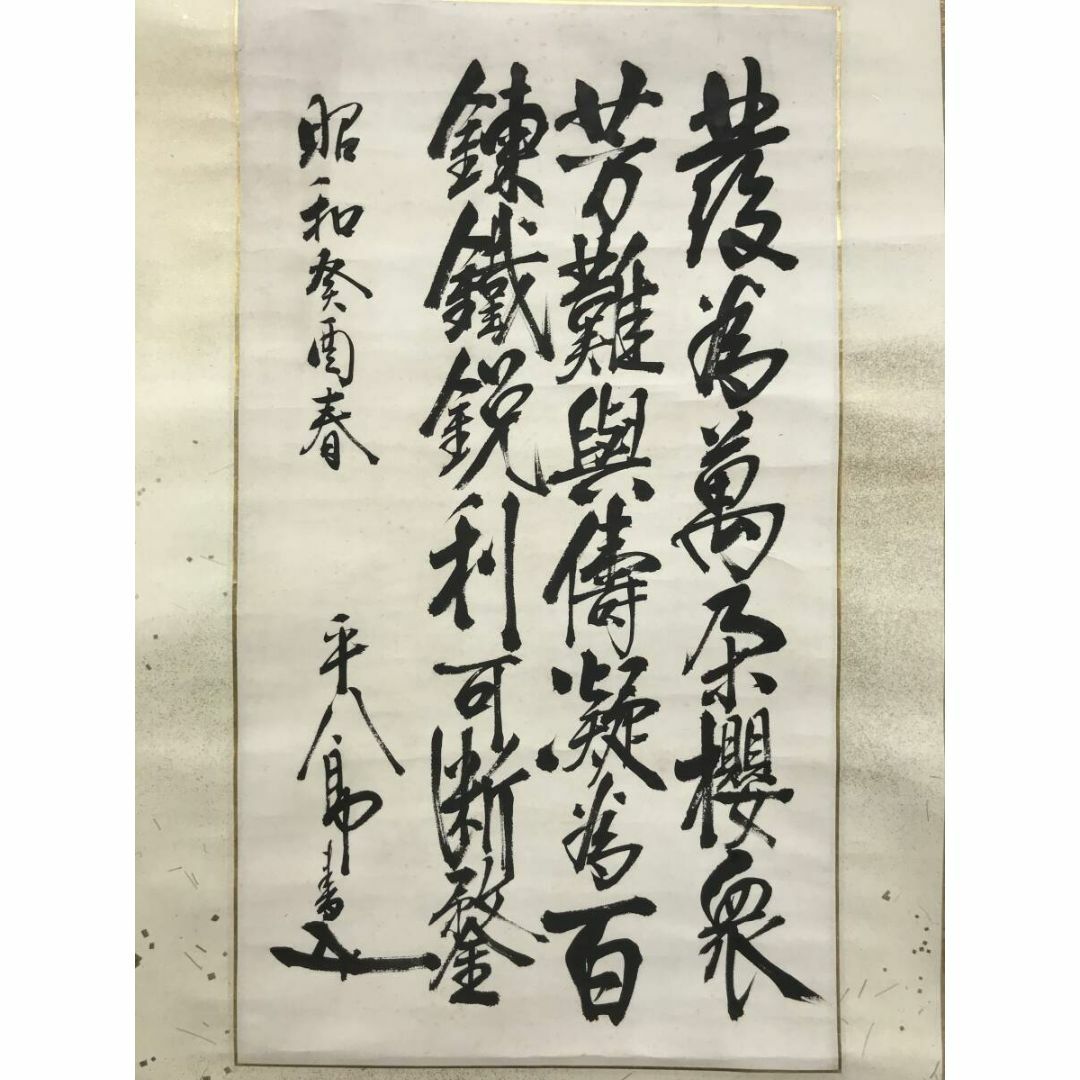 發為萬朶櫻衆
芳難與儔凝為百
錬鐵鋭利可断鍪
昭和癸酉春
平八郎書